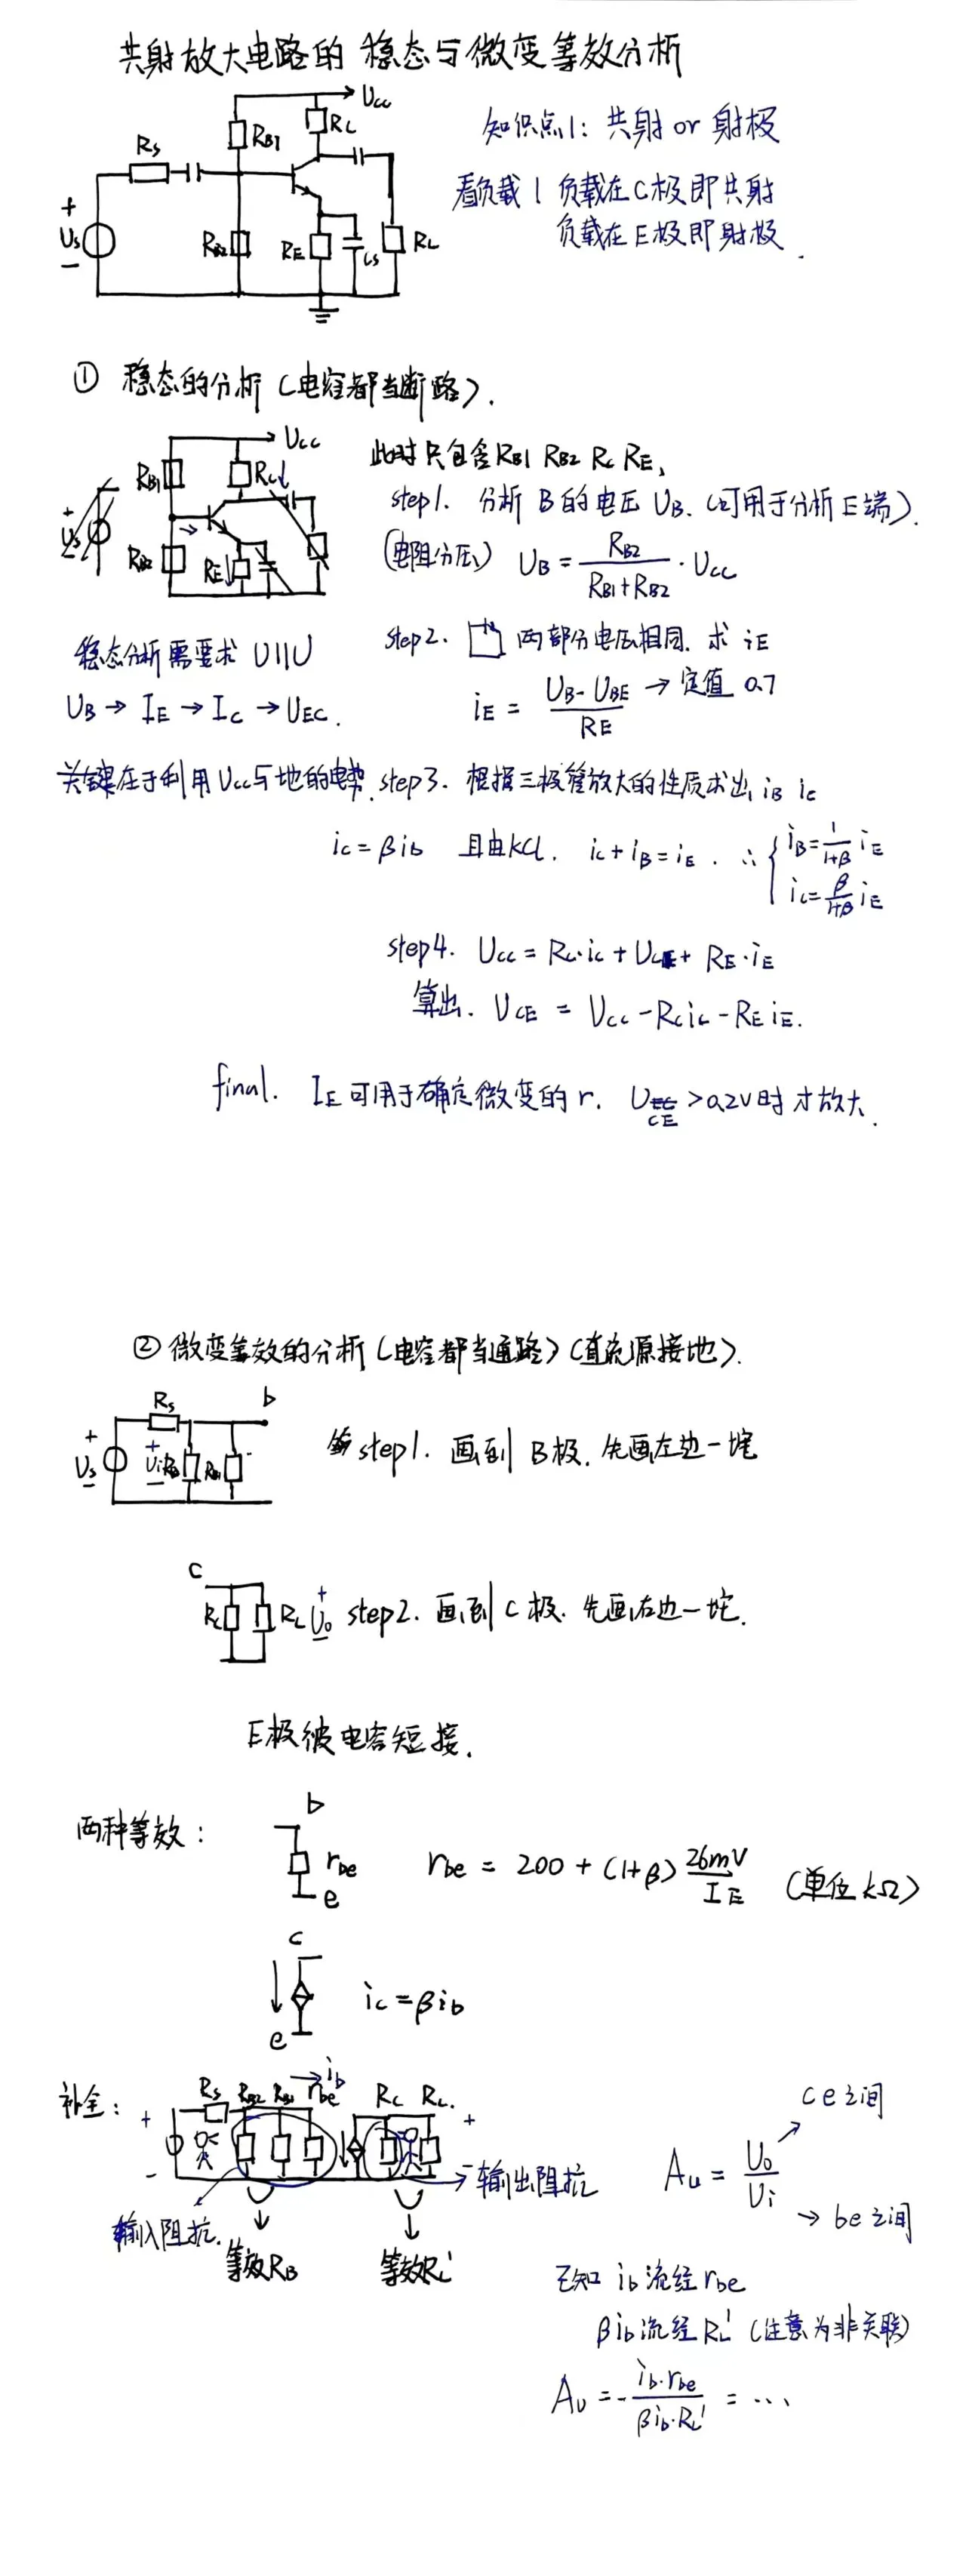 共射放大电路的稳态与微变等效分析
Ucc
RB1
Rc
Rs
+
Us
-
RB2
RE
Cs
RL
知识点1: 共射 or 射极
看负载! 负载在C极即共射
负载在E极即射极.
① 稳态的分析 (电容都当断路).
Ucc
RB1
Rc
+
Us
-
RB2
RE
此时只包含RB1 RB2 Rc RE,
step1. 分析 B的电压 UB. (可用于分析E端).
(电阻分压) UB = RB2/(RB1+RB2) · Ucc
稳态分析需要求 UIIU
UB → IE → IC → UEC.
关键在于利用Ucc与地的电势.
step2. 两部分电压相同. 求 iE
iE = (UB-UBE)/RE → 定值 0.7
step3. 根据三极管放大的性质求出 iB ic
ic = βib 且由KCL. ic + iB = iE. ∴ { iB = 1/(1+β) iE
ic = β/(1+β) iE
step4. Ucc = Rc·ic + UCE + RE·iE
算出. UCE = Ucc - Rcic - REiE.
final. IE可用于确定微变的r. UCE > 0.2V时才放大.
② 微变等效的分析 (电容都当通路) (直流源接地).
Rs
b
+
Us
-
+
Ui
-
step1. 画到 B极. 先画左边一坨
c
Rc
RL
+
Uo
-
step2. 画到C极. 先画右边一坨.
E极被电容短接.
两种等效:
b
rbe
e
rbe = 200 + (1+β) 26mV/IE (单位 kΩ)
c
e
ic = βib
补全:
+
-
Rs RB2 RB1 rbe
→ib
Rc RL.
+
-
输入阻抗.
等效RB
等效RL'
输出阻抗
Au = Uo/Ui
ce之间
→ be之间
已知 ib流经rbe
βib流经RL' (注意为非关联)
Au = - ib·rbe/βib·RL' = ...